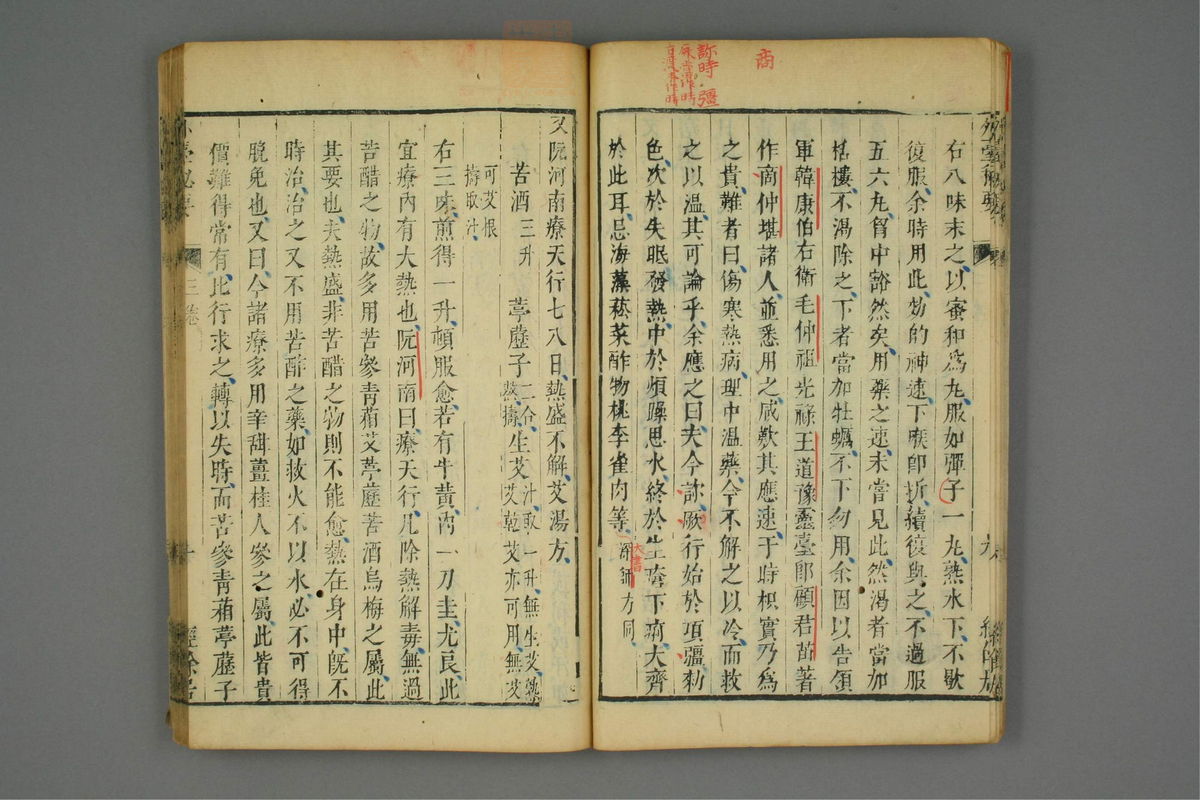 商
右八味末之以蜜和爲丸服如彈子一丸熱水下不歇
復服余時用此効的神速下喉卽折續復與之不過服
五六丸胷中豁然矣用藥之速未嘗見此然渴者當加
栝樓不渴除之下者當加牡蠣不下勿用余因以告領
軍韓康伯右衛毛仲祖光祿王道豫靈臺郎顧君苗著
作商仲堪諸人並悉用之咸歎其應速于時枳實乃爲
之貴難者曰傷寒熱病理中温藥今不解之以冷而救
之以温其可論乎余應之曰夫今
行始於項彊勑
色次於失眠發熱中於煩躁思水終於生瘡下痢大齊
於此耳忌海藻菘菜酢物桃李雀肉等
深師方同
大書
又阮河南療天行七八日熱盛不解艾湯方
苦酒三升
葶藶子二合熬擣
生艾汁取一升無生艾熟艾乾艾亦可用無艾可艾根擣取汁
右三味煎得一升頓服愈若有牛黃內一刀圭尤良此
宜療內有大熱也阮河南曰療天行凡除熱解毒無過
苦醋之物故多用苦參青葙艾葶藶苦酒烏梅之屬此
其要也夫熱盛非苦醋之物則不能愈熱在身中旣不
時治治之又不用苦酢之藥如救火不以水必不可得
脫免也又曰今諸療多用辛甜薑桂人參之屬此皆貴
價難得常有比行求之轉以失時而苦參青葙葶藶子